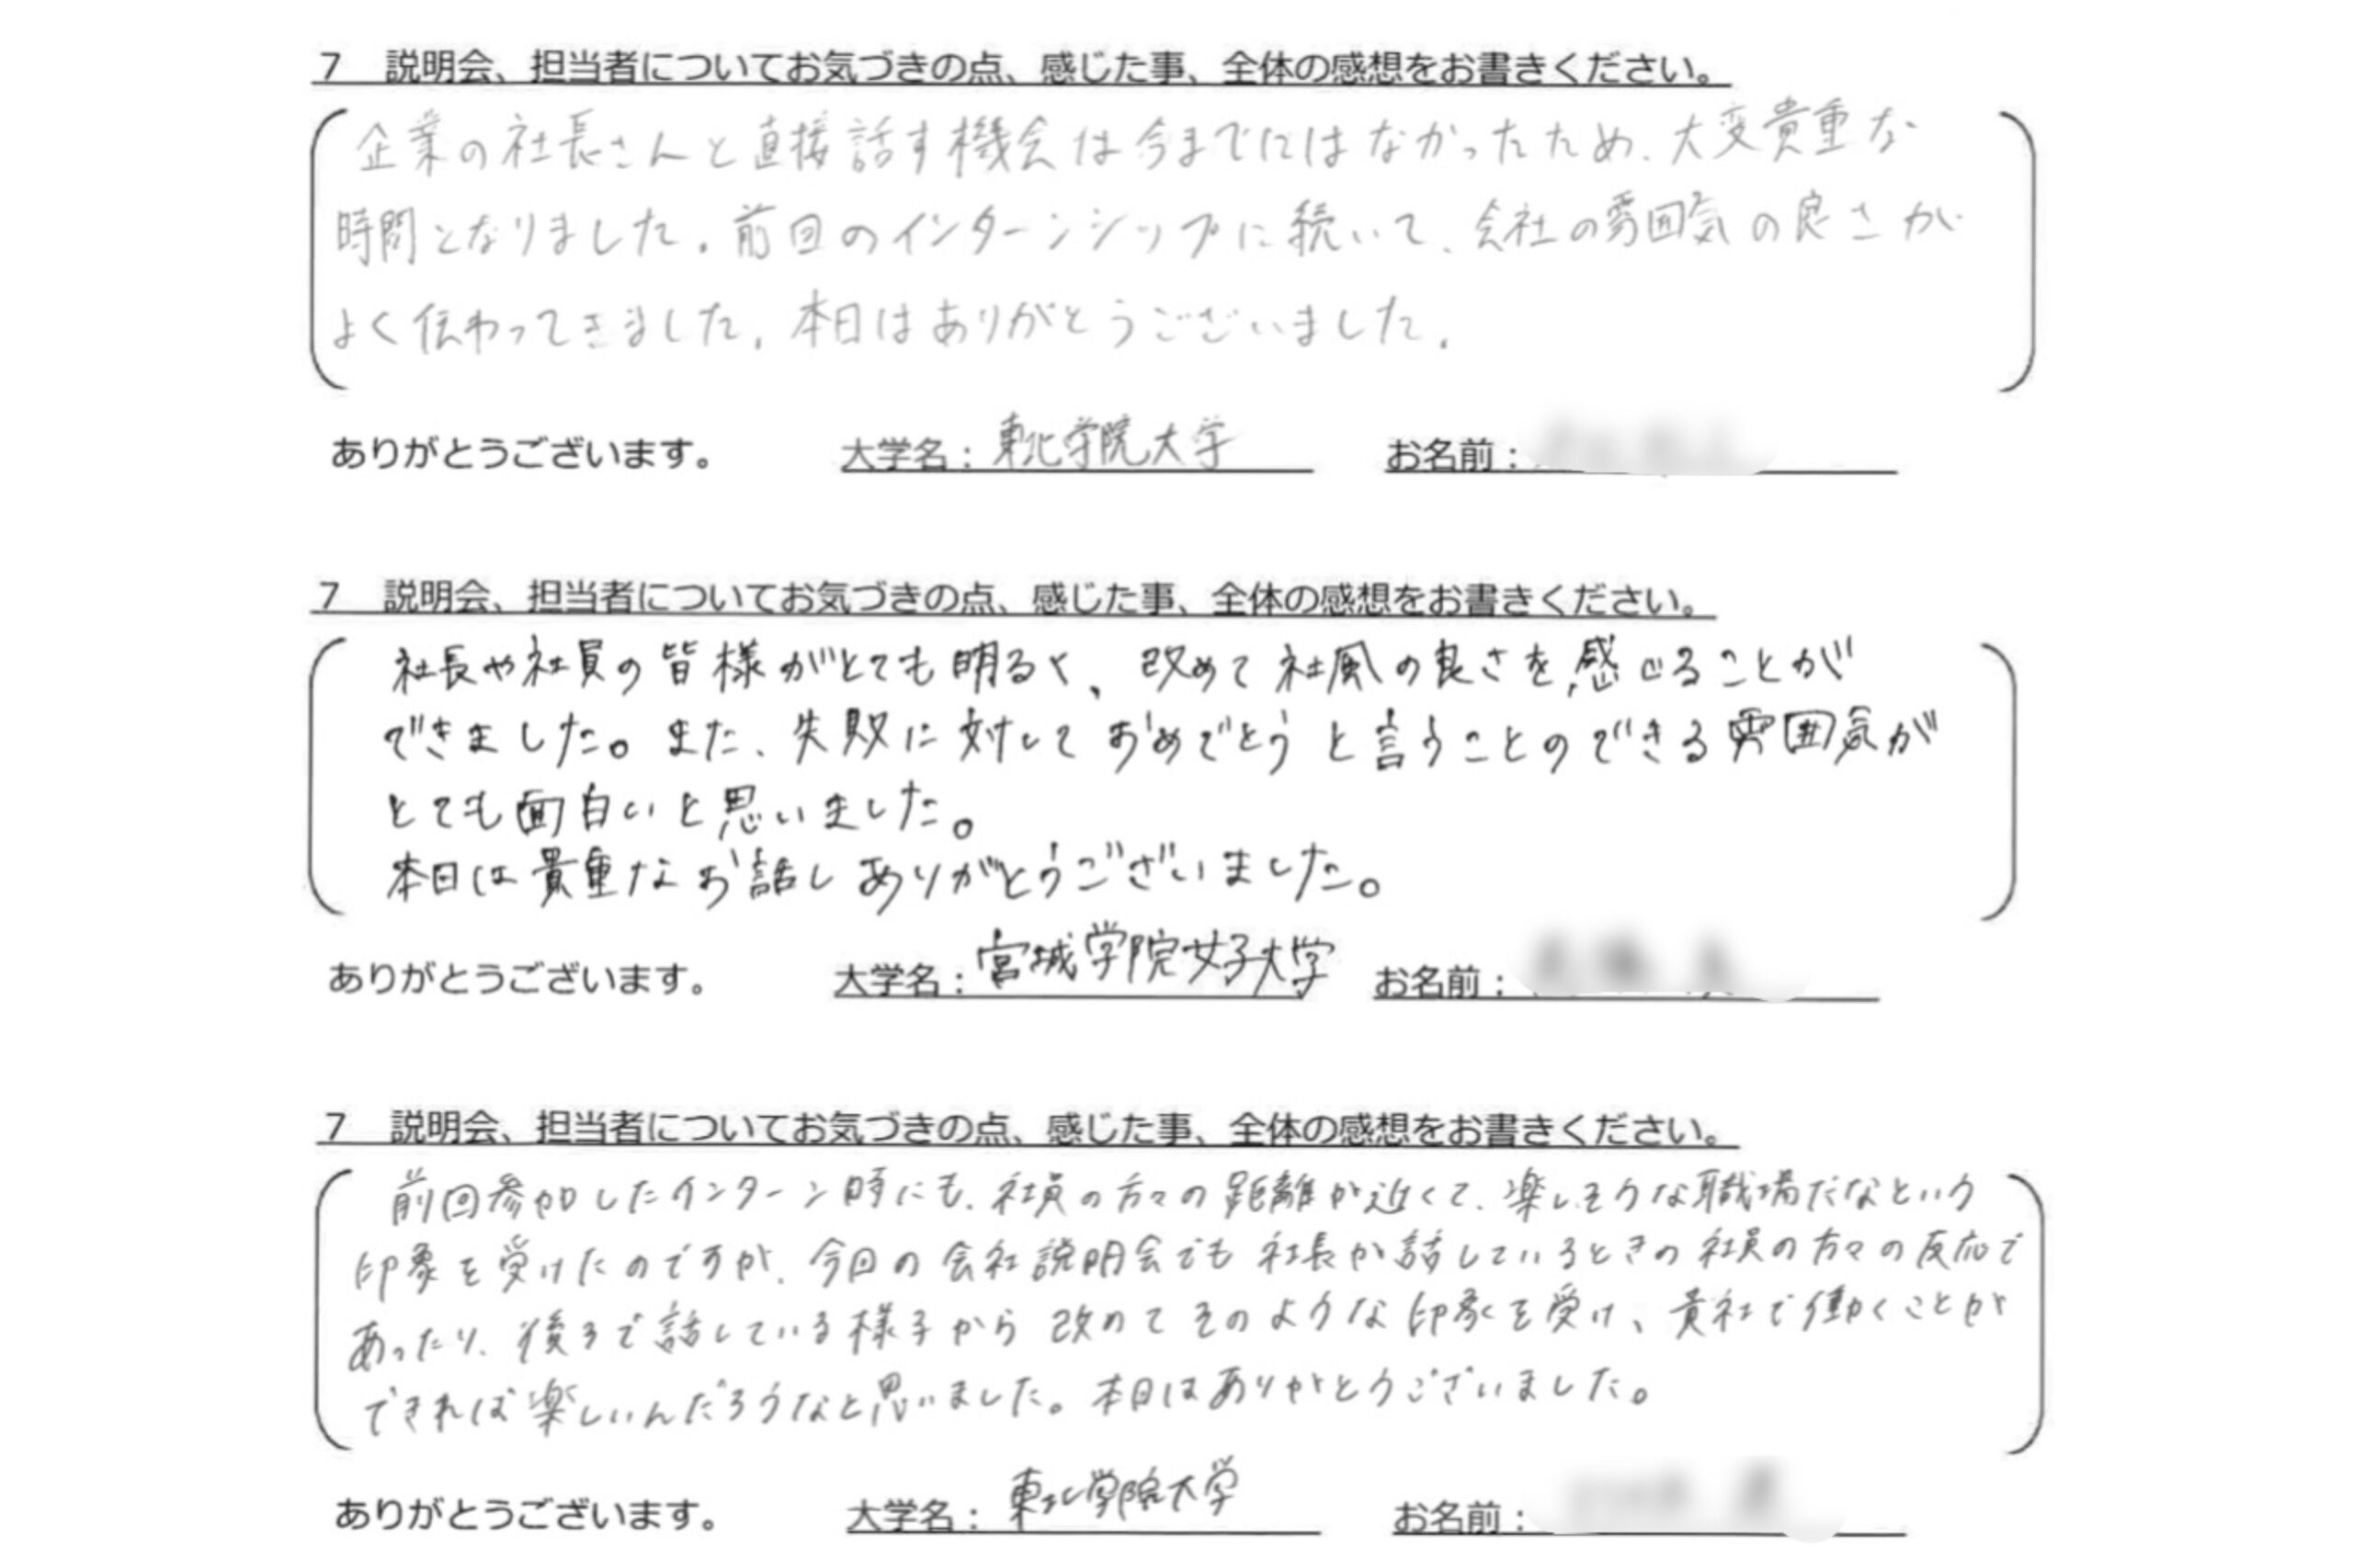 7 説明会、担当者についてお気づきの点、感じた事、全体の感想をお書きください。
企業の社長さんと直接話す機会は今までにはなかったため、大変貴重な
時間となりました。前回のインターンシップに続いて、会社の雰囲気の良さが
よく伝わってきました。本日はありがとうございました。
ありがとうございます。 大学名：東北学院大学 お名前：
7 説明会、担当者についてお気づきの点、感じた事、全体の感想をお書きください。
社長や社員の皆様がとても明るく、改めて社風の良さを感じることが
できました。また、失敗に対しておめでとうと言うことのできる雰囲気が
とても面白いと思いました。
本日は貴重なお話しありがとうございました。
ありがとうございます。 大学名：宮城学院女子大学 お名前：
7 説明会、担当者についてお気づきの点、感じた事、全体の感想をお書きください。
前回参加したインターン時にも、社員の方々の距離が近くて、楽しそうな職場だなという
印象を受けたのですが、今回の会社説明会でも社長が話しているときの社員の方々の反応で
あったり、後ろで話している様子から改めてそのような印象を受け、貴社で働くことが
できれば楽しいんだろうなと思いました。本日はありがとうございました。
ありがとうございます。 大学名：東北学院大学 お名前：